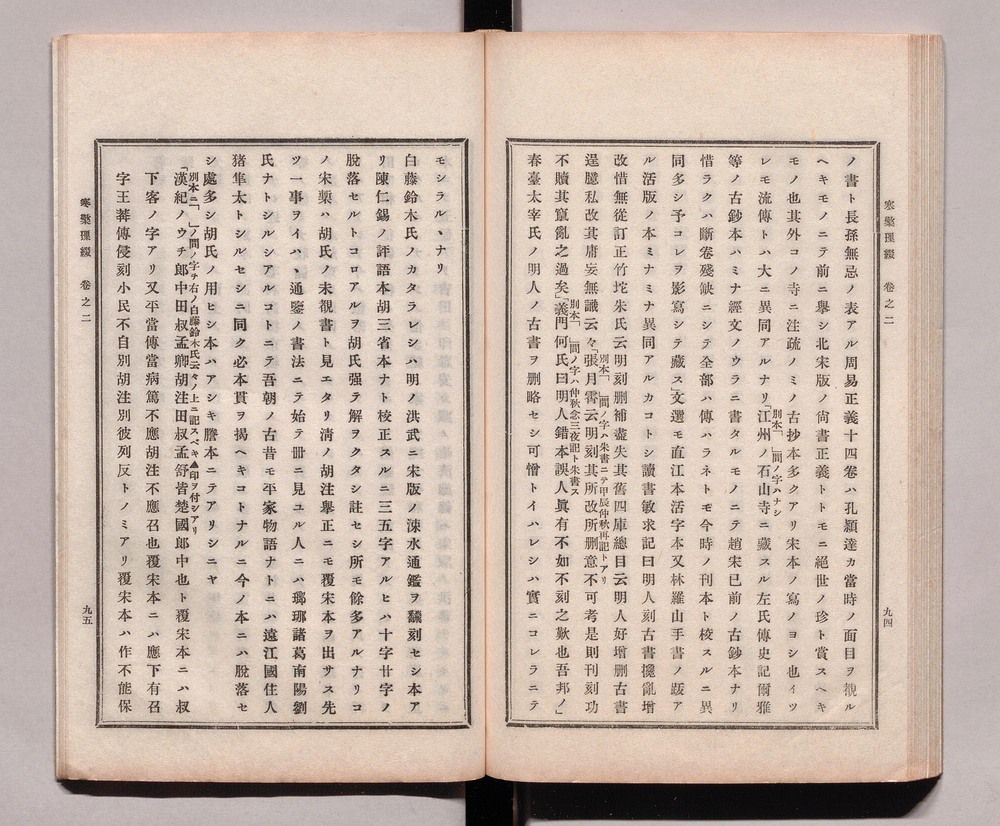 寒檠璅綴　卷之二
九四
ノ書ト長孫無忌ノ表アル周易正義十四卷ハ孔頴達カ當時ノ面目ヲ觀ル
ヘキモノニテ前ニ擧シ北宋版ノ尙書正義トトモニ絕世ノ珍ト賞スヘキ
モノ也其外コノ寺ニ注疏ノミノ古抄本多クアリ宋本ノ寫ノヨシ也イツ
レモ流傳トハ大ニ異同アルナリ「江州ノ石山寺ニ藏スル左氏傳史記爾雅
別本「」間ノ字ハナシ
等ノ古鈔本ハミナ經文ノウラニ書タルモノニテ趙宋已前ノ古鈔本ナリ
惜ラクハ斷卷殘缺ニシテ全部ハ傳ハラネトモ今時ノ刊本ト校スルニ異
同多シ予コレヲ影寫シテ藏ス」文選モ直江本活字本又林羅山手書ノ跋ア
ル活版ノ本ミナミナ異同アルカコトシ讀書敏求記曰明人刻古書攙亂增
改惜無從訂正竹垞朱氏云明刻删補盡失其舊四庫總目云明人好增删古書
逞臆私改其庸妄無識云々「張月霄云明刻其所改所删意不可考是則刊刻功
別本「」間ノ字ハ朱書ニテ甲辰仲秋再記トアリ
不贖其竄亂之過矣」「義門何氏曰明人錯本誤人眞有不如不刻之歎也吾邦ノ」
別本「」間ノ字ハ仲秋念三夜記ト朱書ス
春臺太宰氏ノ明人ノ古書ヲ删略セシ可憎トイハレシハ實ニコレラニテ
モシラルヽナリ
白藤鈴木氏ノカタラレシハ明ノ洪武ニ宋版ノ涑水通鑑ヲ飜刻セシ本ア
リ陳仁錫ノ評語本胡三省本ナト校正スルニ三五字アルヒハ十字廿字ノ
脫落セルトコロアルヲ胡氏强テ解ヲクタシ註セシ所モ餘多アルナリコ
ノ宋槧ハ胡氏ノ未覩書ト見エタリ淸ノ胡注擧正ニモ覆宋本ヲ出サス先
ツ一事ヲイハヽ通鑒ノ書法ニテ始テ冊ニ見ユル人ニハ瑯琊諸葛南陽劉
氏ナトシルシアルコトニテ吾朝ノ古昔モ平家物語ナトニハ遠江國住人
猪隼太トシルセシニ同ク必本貫ヲ揭ヘキコトナルニ今ノ本ニハ脫落セ
シ處多シ胡氏ノ用ヒシ本ハアシキ謄本ニテアリシニヤ
別本ニ「」ノ間ノ字ヲ右ノ白藤鈴木氏云々ノ上ニ記スベキ▲印ヲ付シアリ
「漢紀ノウチ郎中田叔孟卿胡注田叔孟舒皆楚國郎中也ト覆宋本ニハ叔
下客ノ字アリ又平當傳當病篤不應胡注不應召也覆宋本ニハ應下有召
字王莽傳侵刻小民不自別胡注別彼列反トノミアリ覆宋本ハ作不能保
寒檠璅綴　卷之二
九五